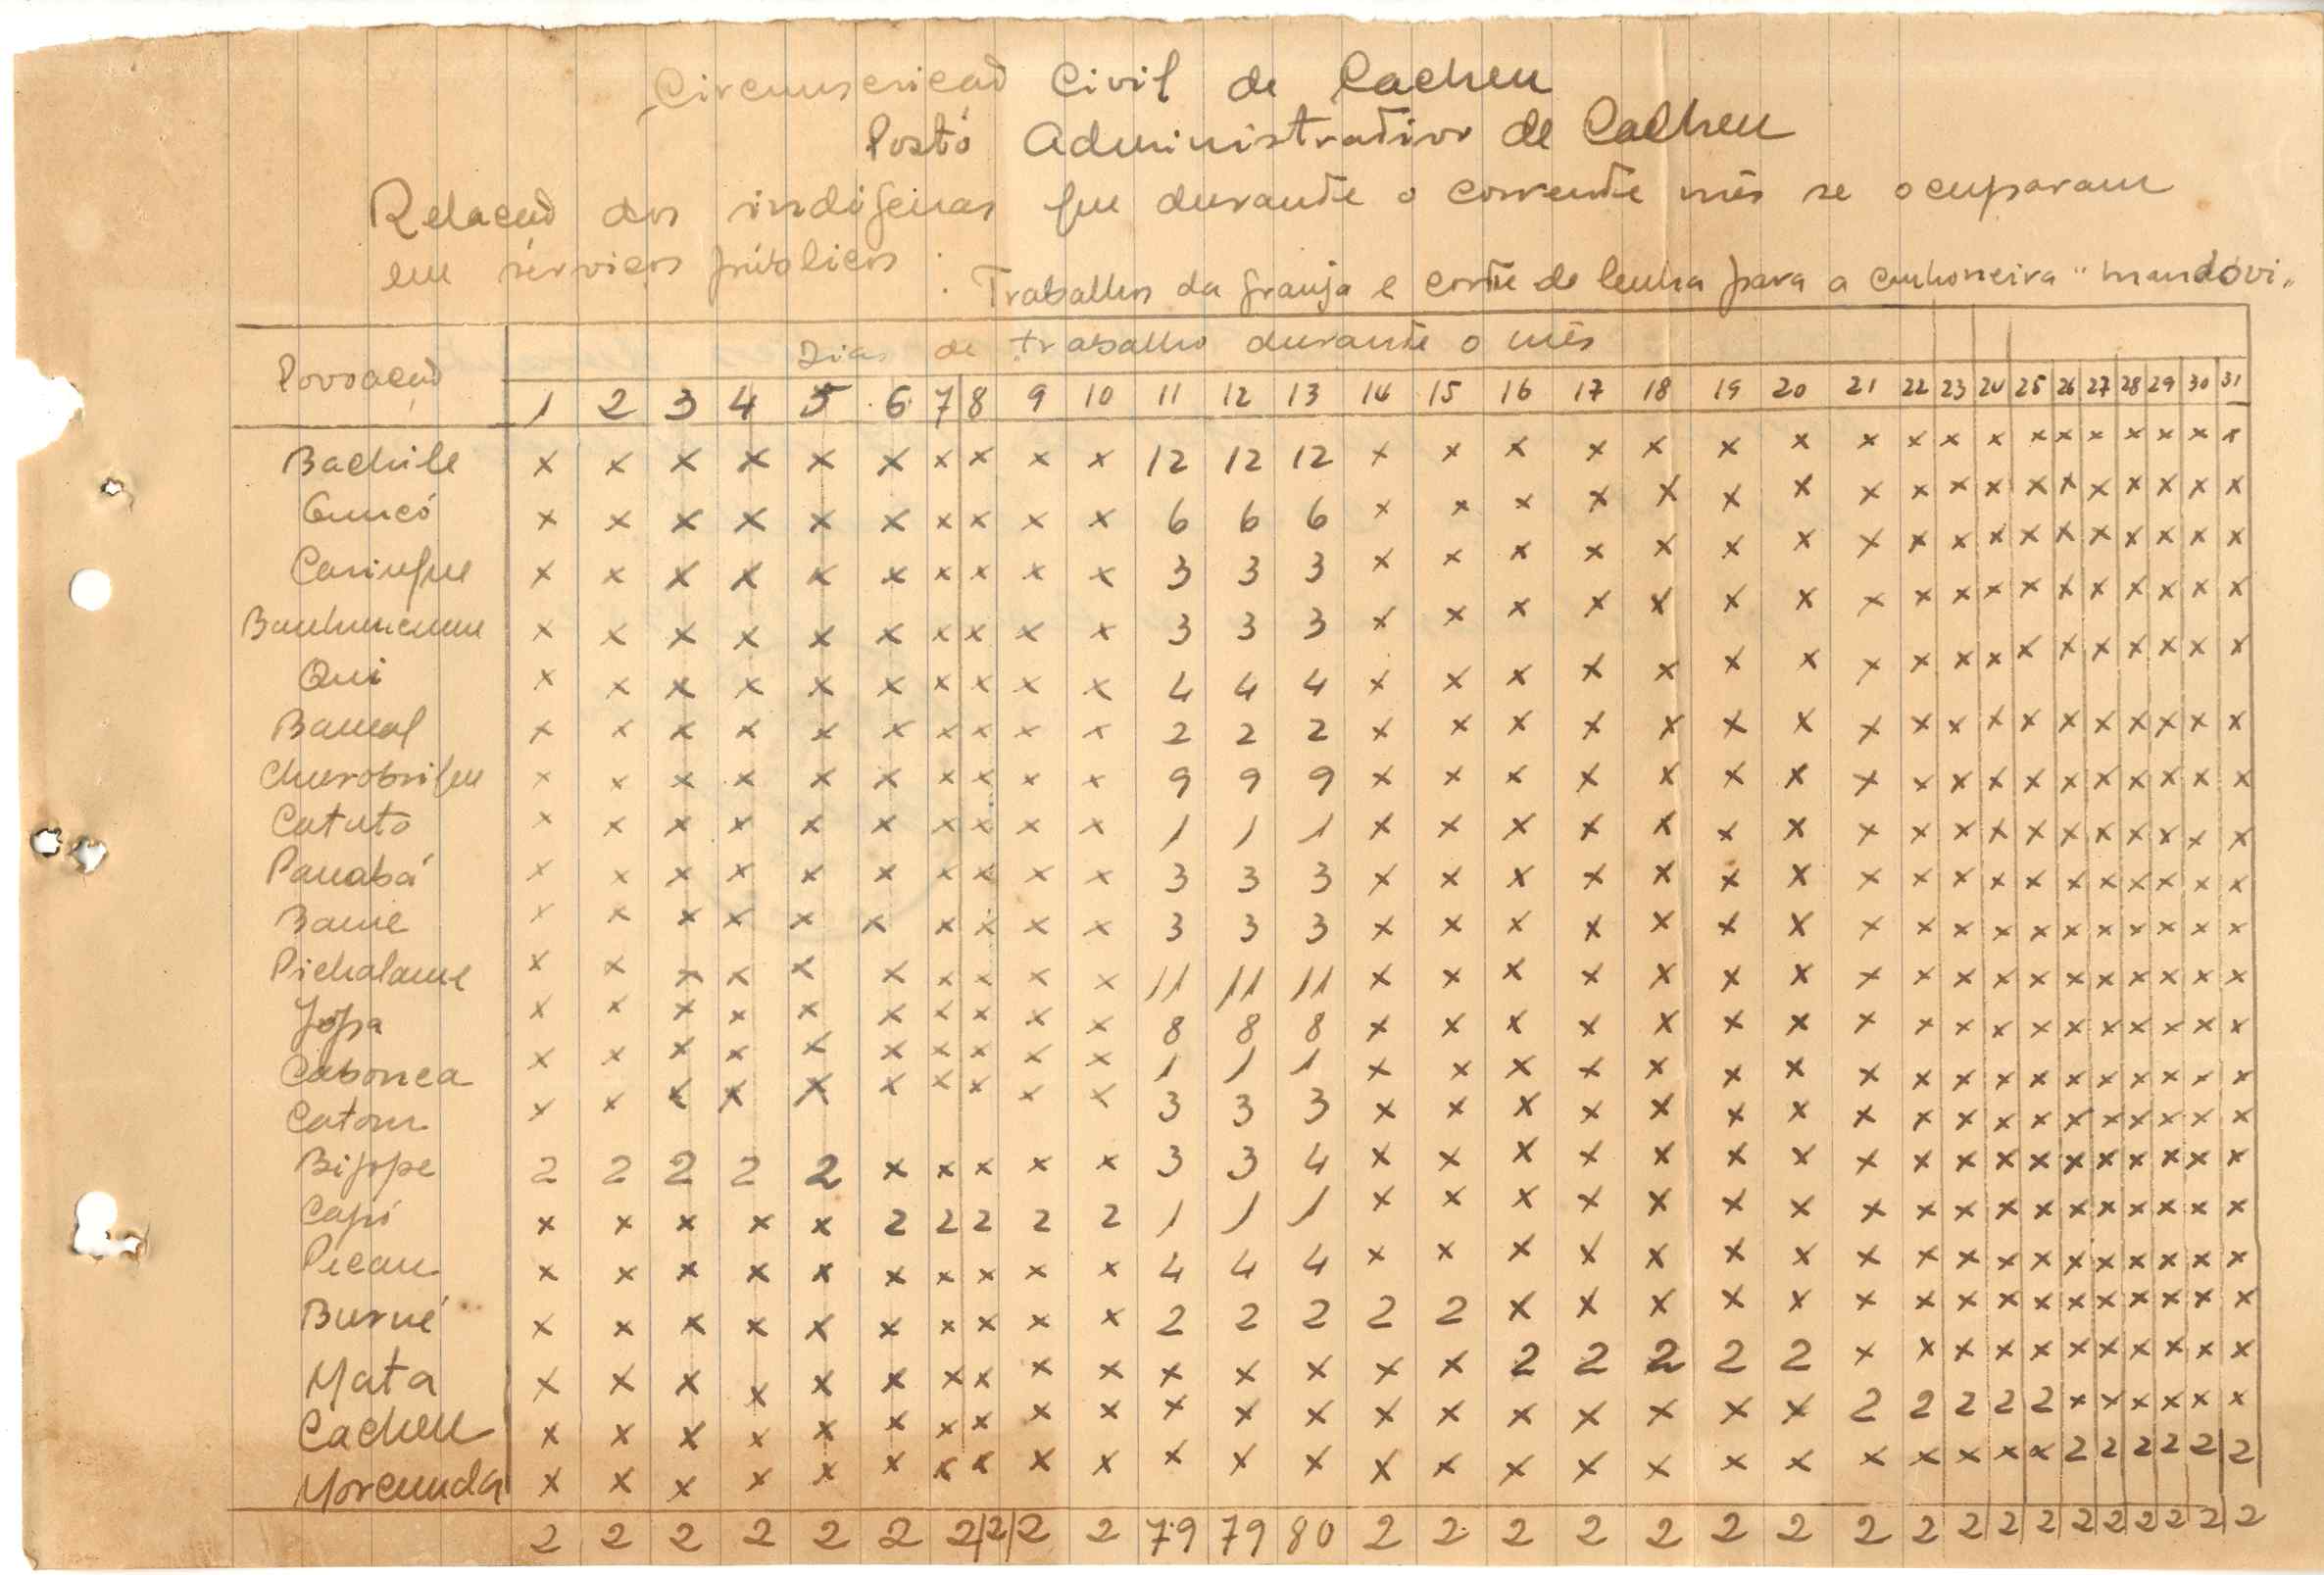 Circunscricaõ Civil de Cacheu
Posto Administrativo de Cacheu
Relacaõ dos indígenas que durante o corrente mês se ocuparam
em serviços públicos :
: Trabalhos da granja e corte de lenha para a canhoneira "mandovi"
Povoacaõ Dias de trabalho durante o mês
1 2 3 4 5 6 7 8 9 10 11 12 13 14 15 16 17 18 19 20 21 22 23 24 25 26 27 28 29 30 31
Bachile x x x x x x x x x x 12 12 12 x x x x x x x x x x x x x x x x x x
x x x x x x x x x x 6 6 6 x x x x x x x x x x x x x x x x x x
x x x x x x x x x x 3 3 3 x x x x x x x x x x x x x x x x x x
x x x x x x x x x x 3 3 3 x x x x x x x x x x x x x x x x x x
Qui x x x x x x x x x x 4 4 4 x x x x x x x x x x x x x x x x x x
x x x x x x x x x x 2 2 2 x x x x x x x x x x x x x x x x x x
Churobrique x x x x x x x x x x 9 9 9 x x x x x x x x x x x x x x x x x x
Catuto x x x x x x x x x x 1 1 1 x x x x x x x x x x x x x x x x x x
Panabá x x x x x x x x x x 3 3 3 x x x x x x x x x x x x x x x x x x
x x x x x x x x x x 3 3 3 x x x x x x x x x x x x x x x x x x
Pichalame x x x x x x x x x x 11 11 11 x x x x x x x x x x x x x x x x x x
Jopa x x x x x x x x x x 8 8 8 x x x x x x x x x x x x x x x x x x
Cabonca x x x x x x x x x x 1 1 1 x x x x x x x x x x x x x x x x x x
Catom x x x x x x x x x x 3 3 3 x x x x x x x x x x x x x x x x x x
Bijope 2 2 2 2 2 x x x x x 3 3 4 x x x x x x x x x x x x x x x x x x
Capó x x x x x 2 2 2 2 2 1 1 1 x x x x x x x x x x x x x x x x x x
Pecau x x x x x x x x x x 4 4 4 x x x x x x x x x x x x x x x x x x
Burné x x x x x x x x x x 2 2 2 2 2 x x x x x x x x x x x x x x x x
Mata x x x x x x x x x x x x x x x 2 2 2 2 2 x x x x x x x x x x x
Cacheu x x x x x x x x x x x x x x x x x x x x 2 2 2 2 2 x x x x x x
Morcunda x x x x x x x x x x x x x x x x x x x x x x x x x 2 2 2 2 2 2
2 2 2 2 2 2 2 2 2 2 79 79 80 2 2 2 2 2 2 2 2 2 2 2 2 2 2 2 2 2 2